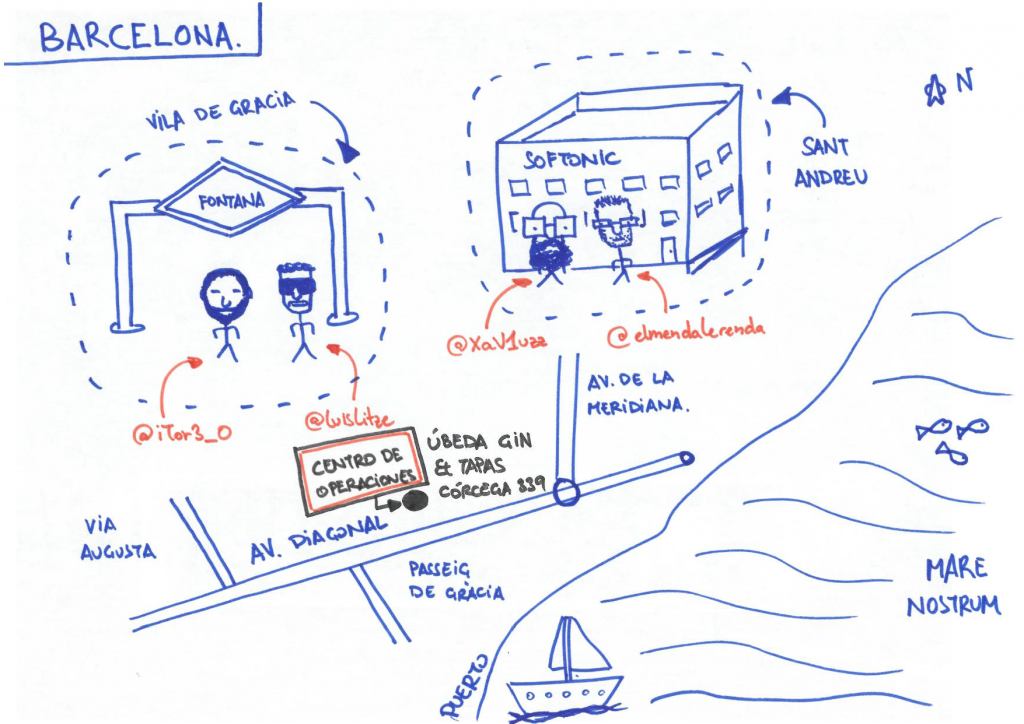 BARCELONA.
VILA DE GRACIA
FONTANA
@iTor3_0
@luisLitze
SOFTONIC
@XaV1uzz
@elmendalerenda
SANT
ANDREU
N
AV. DE LA
MERIDIANA.
CENTRO DE
OPERACIONES
ÚBEDA GIN
& TAPAS
CÓRCEGA 339
VIA
AUGUSTA
AV. DIAGONAL
PASSEIG
DE GRÀCIA
MARE
NOSTRUM
PUERTO